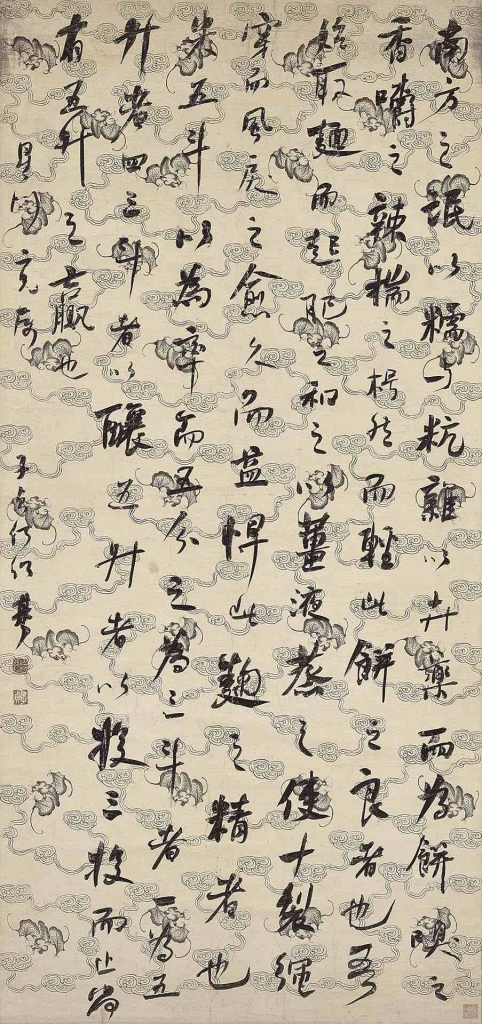 南方之氓以糯与秔雜以卉藥而為餅嗅之
香嚼之辣揣之枵然而輕此餅之良者也吾
始取麵而起肥之和之以薑液蒸之使十裂繩
穿而風戾之愈久而益悍此麴之精者也
米五斗以為率而五分之為三斗者一為五
升者四三斗者以釀五升者以投三投而止尚
有五升之贏也
子貞何紹基